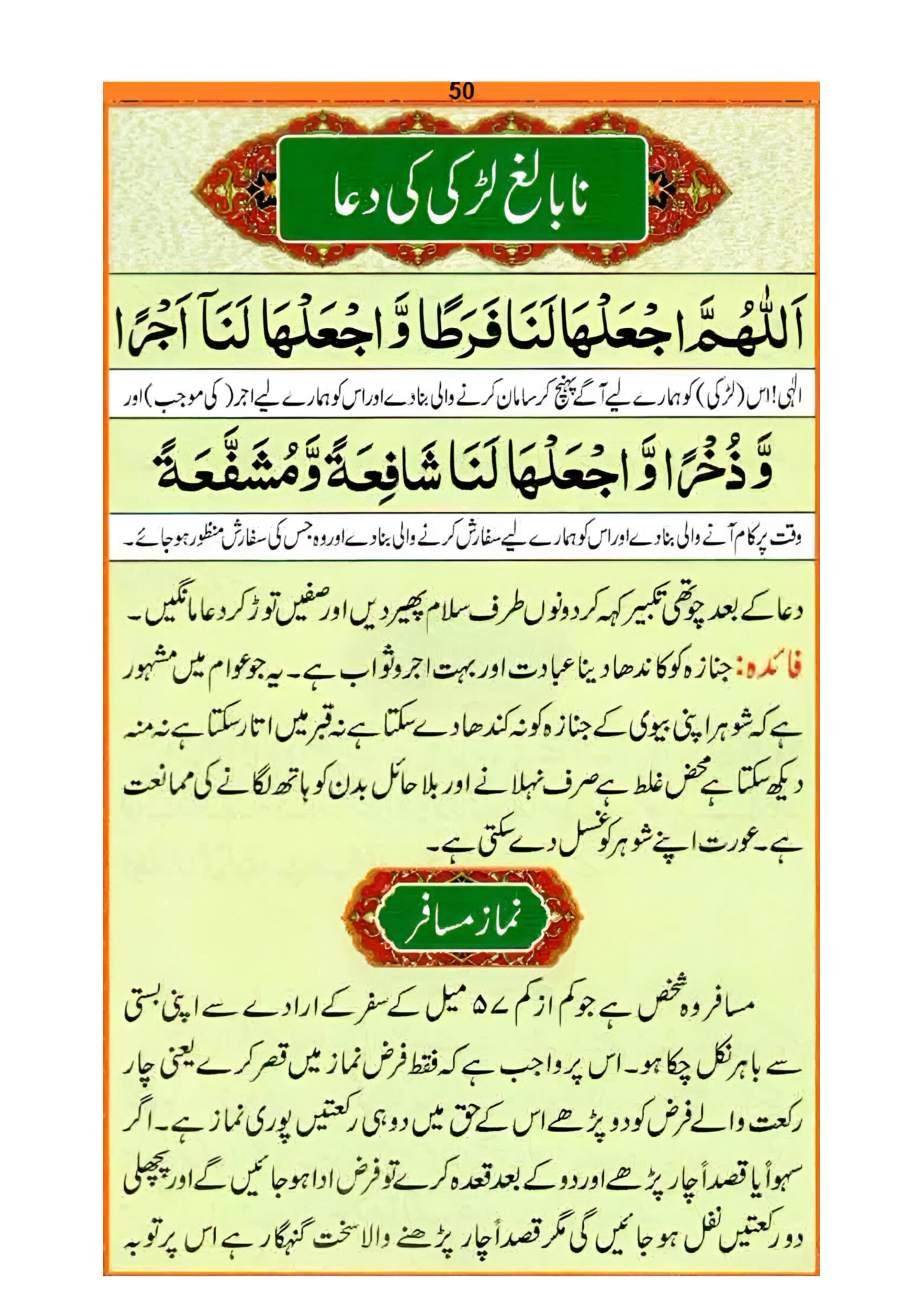 50
نابالغ لڑکی کی دعا
اَللّٰهُمَّ اجْعَلْهَا لَنَا فَرَطًا وَّ اجْعَلْهَا لَنَآ اَجْرًا
الٰہی! اس (لڑکی) کو ہمارے لیے آگے پہنچ کر سامان کرنے والی بنا دے اور اس کو ہمارے لیے اجر (کی موجب) اور
وَّ ذُخْرًا وَّ اجْعَلْهَا لَنَا شَافِعَةً وَّ مُشَفَّعَةً
وقت پر کام آنے والی بنا دے اور اس کو ہمارے لیے سفارش کرنے والی بنا دے اور وہ جس کی سفارش منظور ہو جائے۔
دعا کے بعد چوتھی تکبیر کہہ کر دونوں طرف سلام پھیر دیں اور صفیں توڑ کر دعا مانگیں۔
فائدہ: جنازہ کو کاندھا دینا عبادت اور بہت اجر و ثواب ہے۔ یہ جو عوام میں مشہور
ہے کہ شوہر اپنی بیوی کے جنازہ کو نہ کندھا دے سکتا ہے نہ قبر میں اتار سکتا ہے نہ منہ
دیکھ سکتا ہے محض غلط ہے صرف نہلانے اور بلا حائل بدن کو ہاتھ لگانے کی ممانعت
ہے۔ عورت اپنے شوہر کو غسل دے سکتی ہے۔
نماز مسافر
مسافر وہ شخص ہے جو کم از کم ۵۷ میل کے سفر کے ارادے سے اپنی بستی
سے باہر نکل چکا ہو۔ اس پر واجب ہے کہ فقط فرض نماز میں قصر کرے یعنی چار
رکعت والے فرض کو دو پڑھے اس کے حق میں دو ہی رکعتیں پوری نماز ہے۔ اگر
سہواً یا قصداً چار پڑھے اور دو کے بعد قعدہ کرے تو فرض ادا ہو جائیں گے اور پچھلی
دو رکعتیں نفل ہو جائیں گی مگر قصداً چار پڑھنے والا سخت گنہگار ہے اس پر توبہ